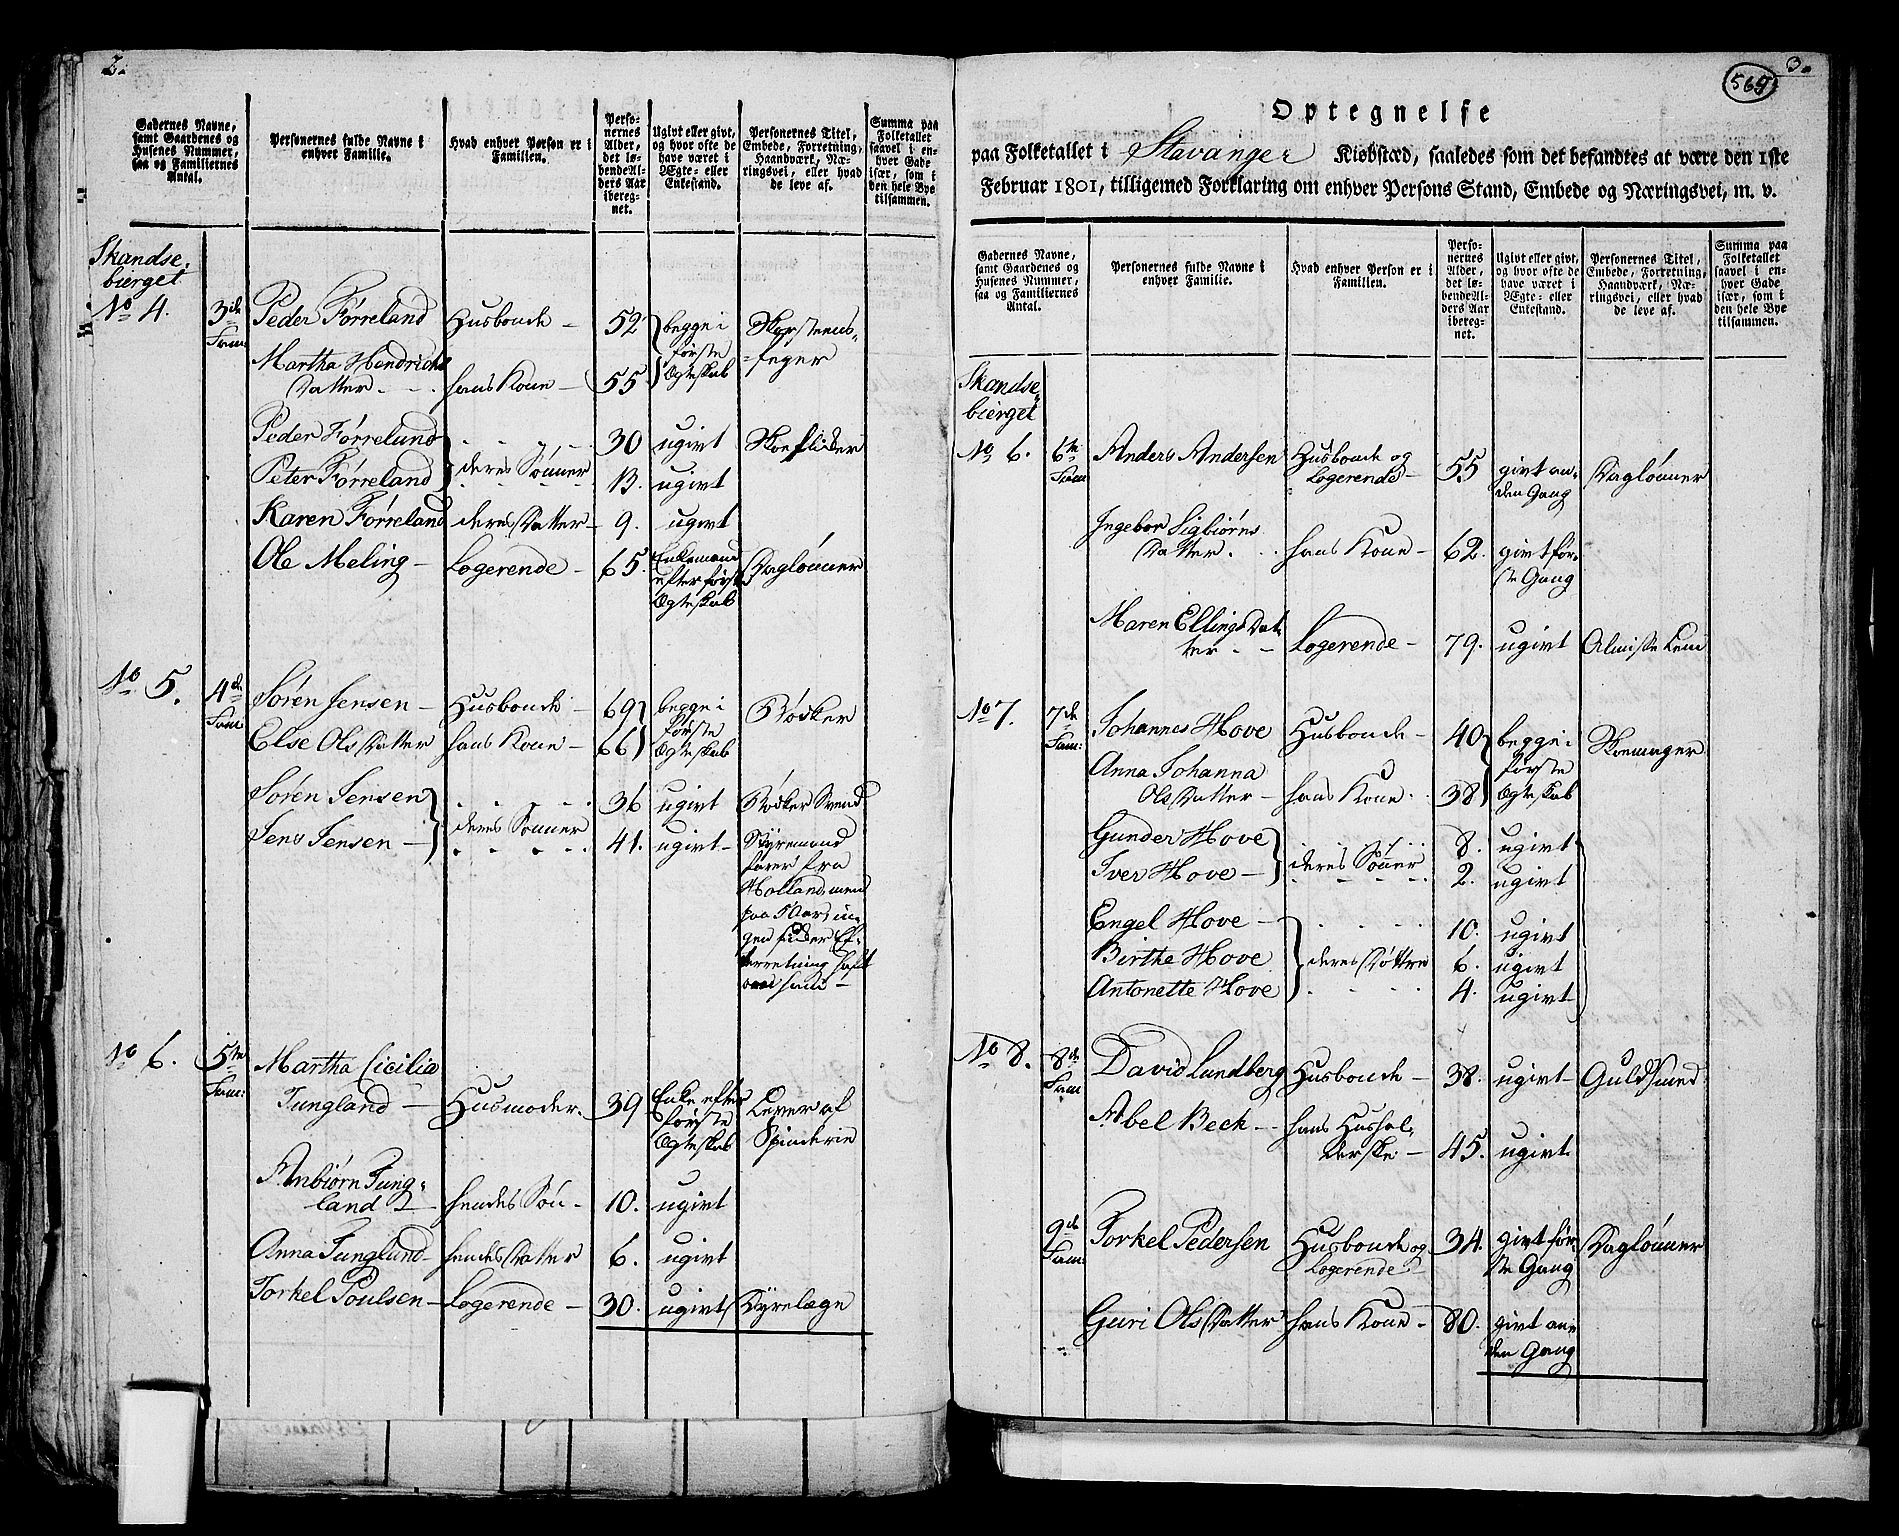 2.
Gadernes Navne, samt Gaardenes og Husenes Nummer, saa og Familiernes Antal.
Personernes fulde Navne i enhver Familie.
Hvad enhver Person er i Familien.
Personernes Alder, det løbende Alders Aar iberegnet.
Ugivt eller givt, og hvor ofte de have været i Ægte- eller Enkestand.
Personernes Titel, Embede, Forretning, Haandværk, Næringsvei, eller hvad de leve af.
Summa paa Folketallet saavel i enhver Gade især, som i den hele Bye tilsammen.
Skandse-
bierget
No 4. 3de Fam: Peder Førreland Husbonde - 52 begge i første Ægteskab Skorsteens-feger
Martha Hendrichs Datter - hans Kone - 55
Peder Førreland } deres Sønner 30 ugivt Skoeflider
Peter Førreland } 13. ugivt
Karen Førreland deres Datter - 9. ugivt
Ole Meling - Logerende - 65. Enkemand efter første Ægteskab Daglønner
No 5. 4de Fam: Søren Jensen - Husbonde - 69 begge i første Ægteskab Bødker
Else Ols Datter hans Kone - 66
Søren Jensen } deres Sønner 36 ugivt Bødker Svend
Jens Jensen - } 41. ugivt - Styremand
farer fra
Holland, men
paa 5 Aar in-
gen
Ef-
terretning haft
No 6. 5te Fam: Martha Cicilia
Jungland - Husmoder. 39 Enke efter første Ægteskab Lever af Spinderie
Anbiørn Jung-
land - hendes Søn - 10. ugivt
Anna Jungland - hendes Datter 6. ugivt
Torkel Poulsen - Logerende - 30. ugivt Dyrelæge
3.
569
Optegnelse
paa Folketallet i Stavanger Kiøbstæd, saaledes som det befandtes at være den 1ste
Februar 1801, tilligemed Forklaring om enhver Persons Stand, Embede og Næringsvei, m. v.
Gadernes Navne, samt Gaardenes og Husenes Nummer, saa og Familiernes Antal.
Personernes fulde Navne i enhver Familie.
Hvad enhver Person er i Familien.
Personernes Alder, det løbende Alders Aar iberegnet.
Ugivt eller givt, og hvor ofte de have været i Ægte- eller Enkestand.
Personernes Titel, Embede, Forretning, Haandværk, Næringsvei, eller hvad de leve af.
Summa paa Folketallet saavel i enhver Gade især, som i den hele Bye tilsammen.
Skandse-
bierget
No 6. 6te Fam Anders Andersen Husbonde og Logerende - 55 givt anden Gang Daglønner
Ingebor Sigbiørns
Datter. hans Kone - 62. givt første Gang
Maren Ellings Dat-
ter - - Logerende - 79. ugivt Almisse Lem
No 7. 7de Fam: Johannes Hove Husbonde - 40 begge i første Ægteskab Skomager
Anna Johanna
Ols Datter - hans Kone - 38
Gunder Hove } deres Sønner 8. ugivt
Iver Hove - } 2. ugivt
Engel Hove - } deres Døttre 10. ugivt
Birthe Hove } 6. ugivt
Antonette Hove } 4. ugivt
No 8. 8de Fam David Lundberg Husbonde - 38. ugivt - Guldsmed
Abel Beck - hans Hushol-
derske - 45. ugivt
9de Fam: Torkel Pedersen Husbonde og Logerende - 34. givt første Gang Daglønner
Guri Ols Datter hans Kone - 80. givt anden Gang